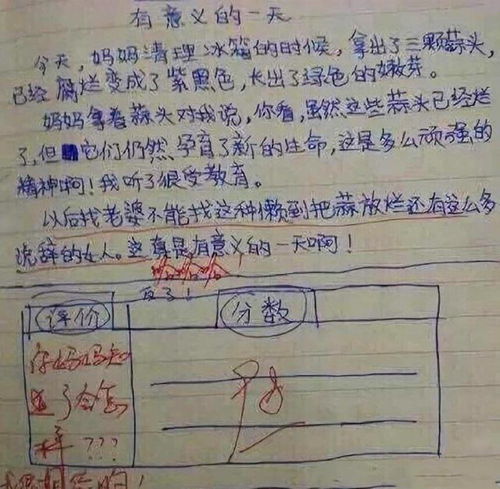 有意义的一天
今天，妈妈清理冰箱的时候，拿出了三颗蒜头，
已经腐烂变成了紫黑色，长出了绿色的嫩芽。
妈妈拿着蒜头对我说，你看，虽然这些蒜头已经烂
了，但它们仍然孕育了新的生命，这是多么顽强的
精神啊！我听了很受教育。
以后找老婆不能找这种懒到把蒜放烂还有这么多
说辞的女人。这真是有意义的一天啊！
反了！
评价
分数
你妈妈知
道了会怎
样？？？